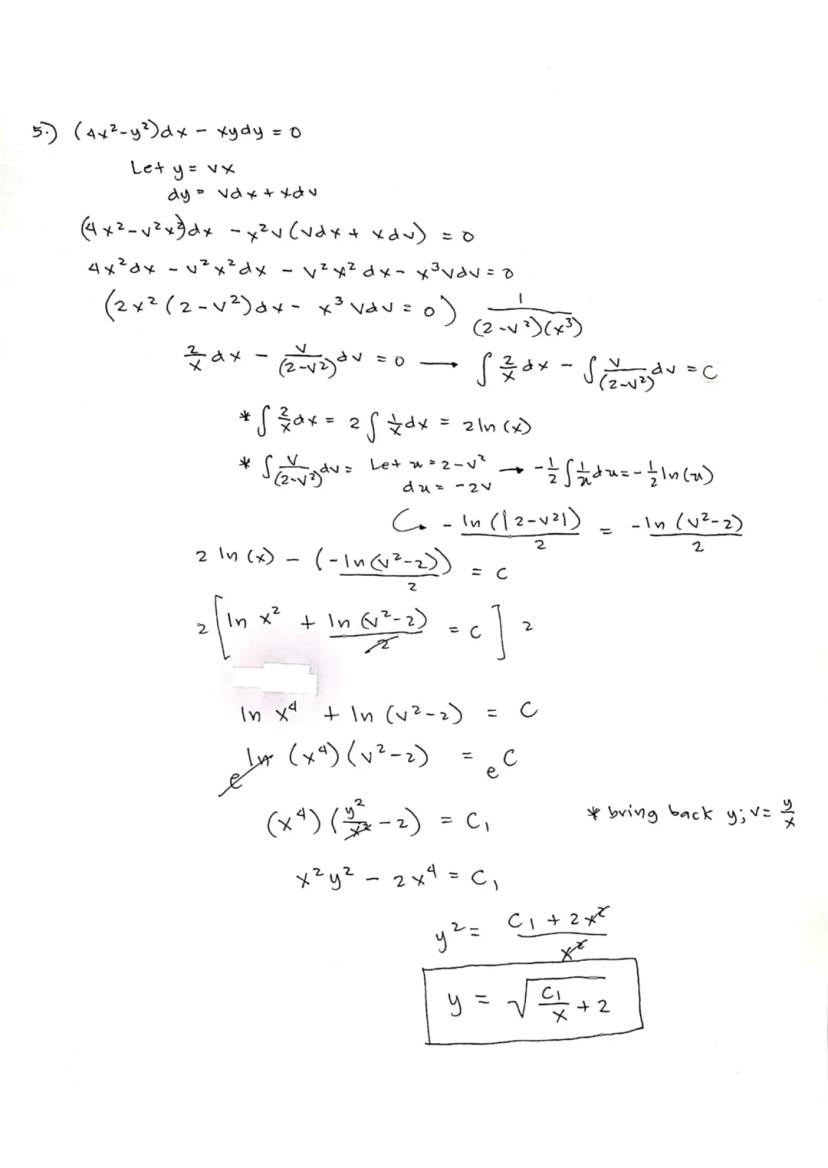 5.) (4x²-y²)dx - xydy = 0
Let y = vx
dy = vdx + xdv
(4x²-v²x²)dx - x²v(vdx + xdv) = 0
4x²dx - v²x²dx - v²x²dx - x³vdv = 0
(2x²(2-v²)dx - x³vdv = 0) 1/((2-v²)(x³))
2/x dx - v/(2-v²) dv = 0 → ∫ 2/x dx - ∫ v/(2-v²) dv = C
* ∫ 2/x dx = 2 ∫ 1/x dx = 2 ln (x)
* ∫ v/(2-v²) dv = Let u = 2-v² → -1/2 ∫ 1/u du = -1/2 ln(u)
du = -2v
↳ -ln(|2-v²|)/2 = -ln(v²-2)/2
2 ln (x) - (-ln(v²-2))/2 = C
2[ln x² + ln(v²-2)/2 = C] 2
ln x⁴ + ln (v²-2) = C
e ln (x⁴)(v²-2) = e C
(x⁴)(y²/x² - 2) = C₁ * bring back y; v = y/x
x²y² - 2x⁴ = C₁
y² = (C₁ + 2x²)/x²
y = √(C₁/x + 2)